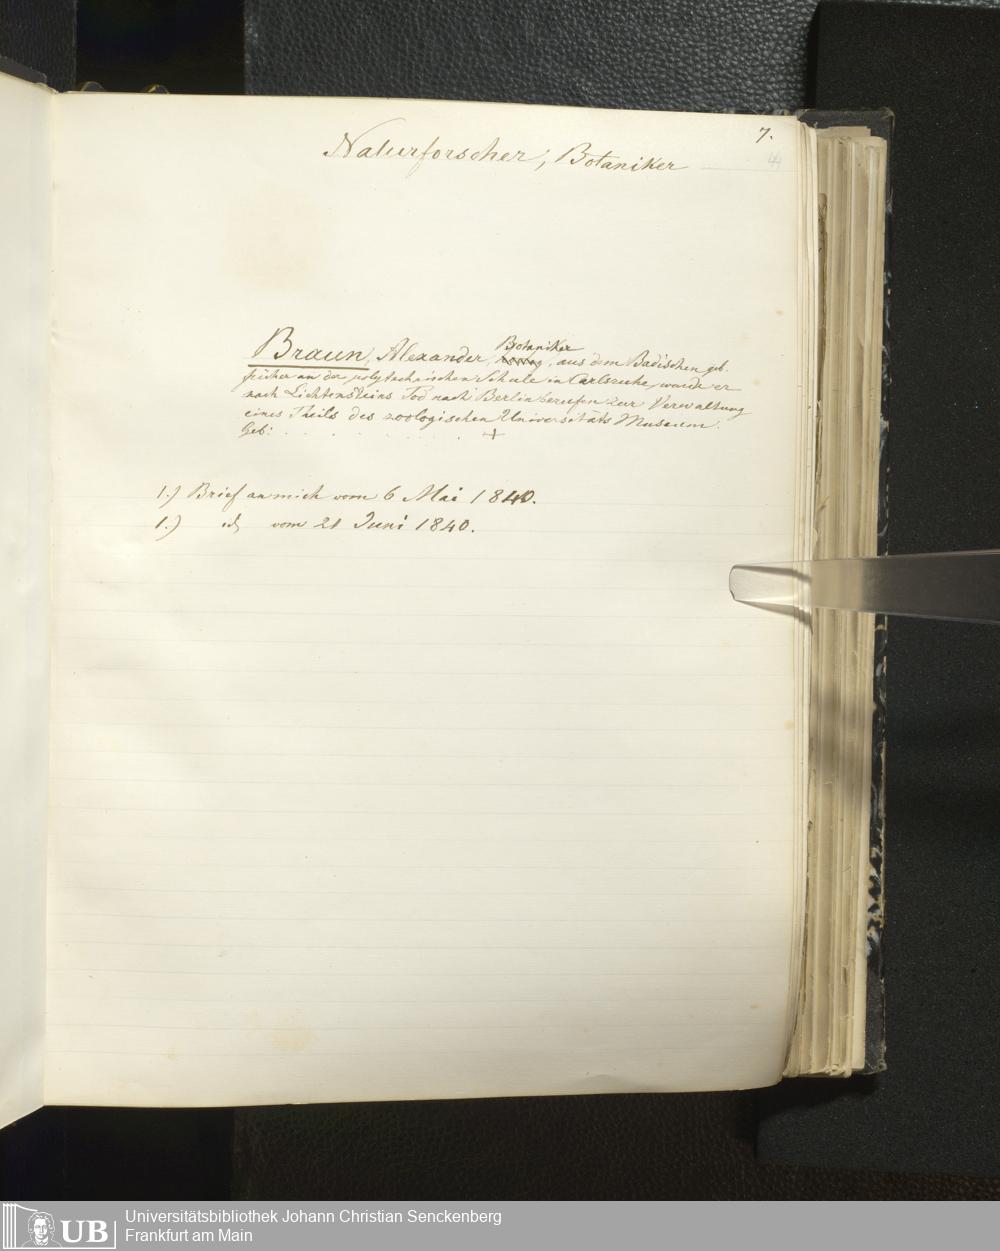 7.
44
Naturforscher, Botaniker
Botaniker
Braun, Alexander, aus dem Badischen geb.
früher an der polytechnischen Schule in Carlsruhe, wurde er
nach Lichtensteins Tod nach Berlin berufen zur Verwaltung
eines Theils des zoologischen Universitäts Museum.
Geb: . . . . . . . . . . +
1.) Brief an mich vom 6 Mai 1840.
1.) id vom 21 Juni 1840.
UB
Universitätsbibliothek Johann Christian Senckenberg
Frankfurt am Main